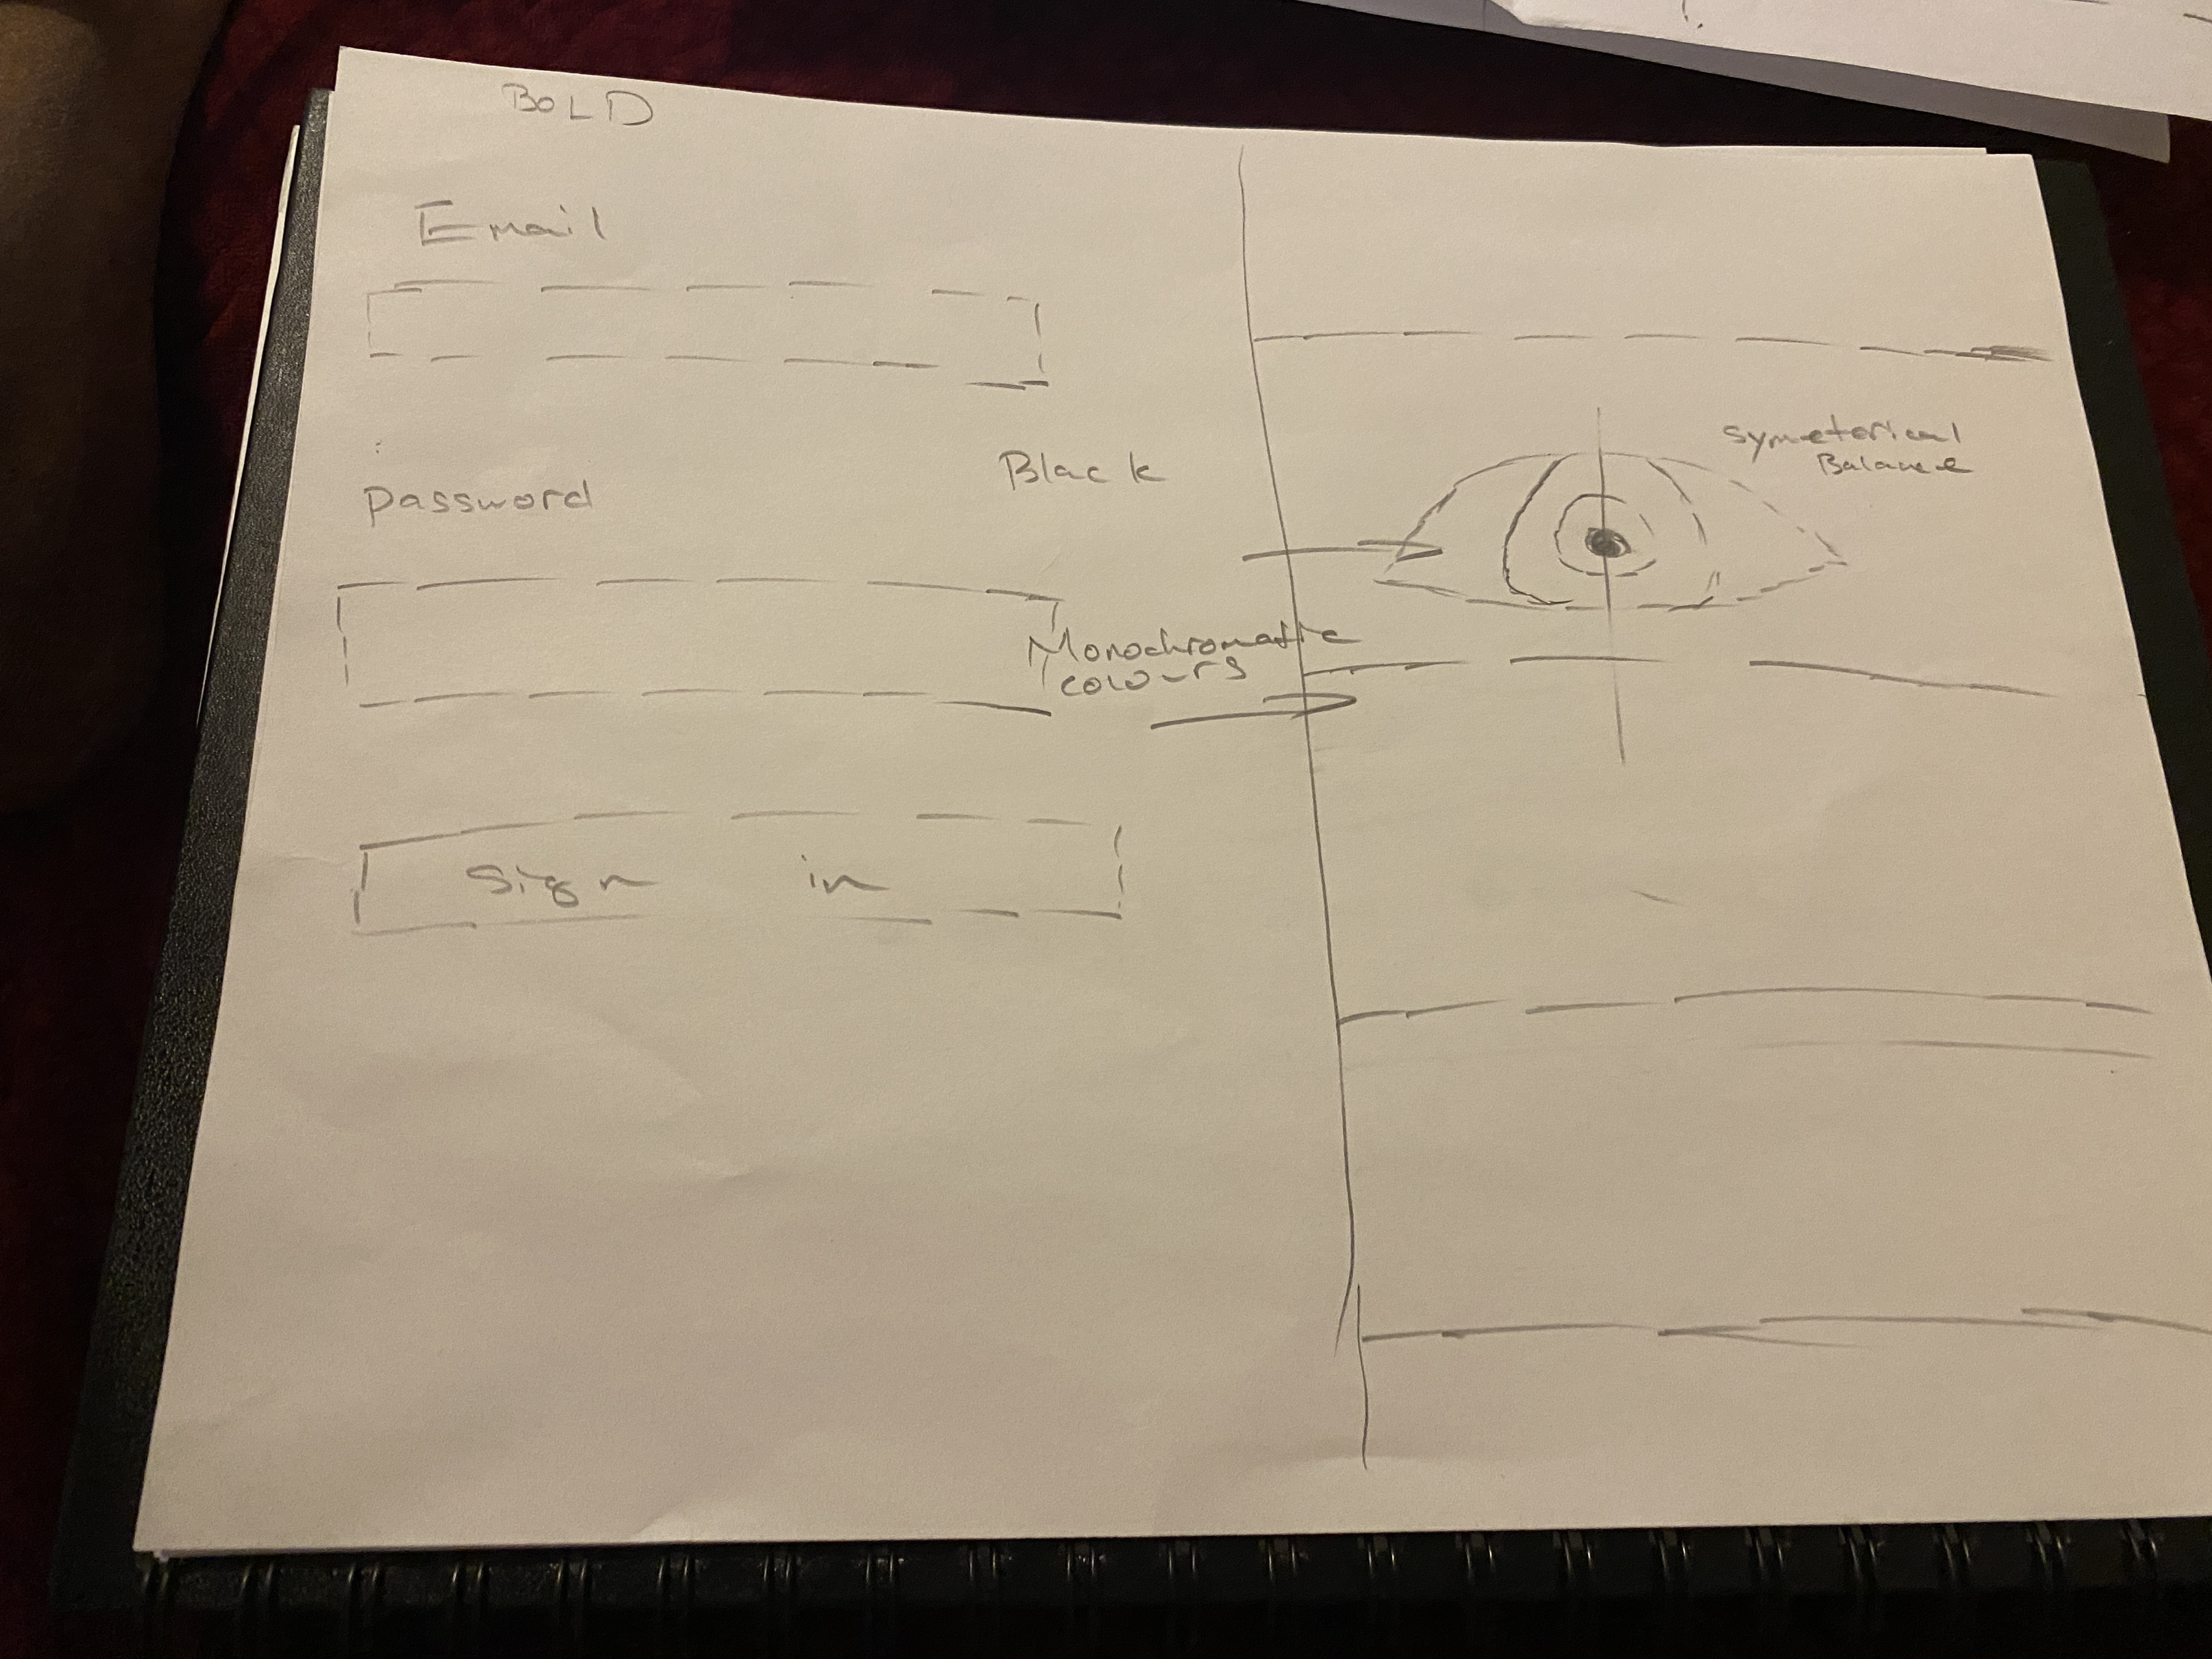 BOLD
Email
Password
Black
Monochromatic
colours
Sign in
Symeterical
Balance